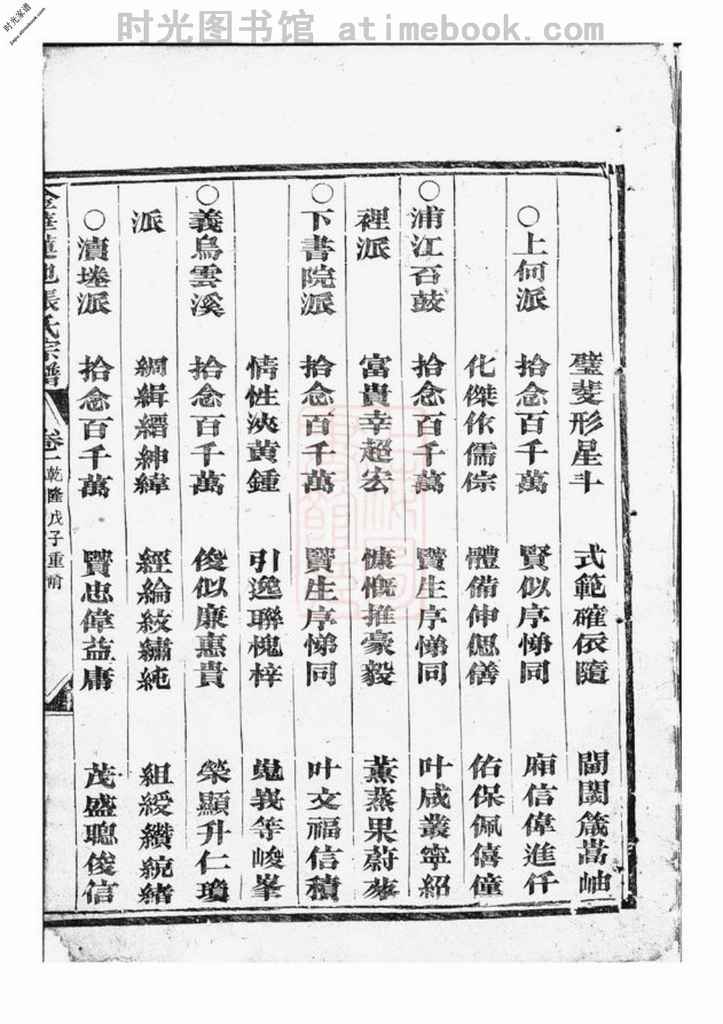 时光图书馆 atimebook.com
时光家谱
jiapu.atimebook.com
璧斐形星斗 式範確依隨 閶閩箴嵩岫
○上何派 拾念百千萬 賢似序悌同 廂信偉進仟
化傑依儒倧 體備伸偲僐 佑保佩僖僮
○浦江石鼓 拾念百千萬 賢生序悌同 叶咸叢寧紹
裡派 富貴幸超宏 慷慨推豪毅 薰蒸果蔚
○下書院派 拾念百千萬 賢生序悌同 叶文福信積
情性浹黃鍾 引逸聯槐梓 義等峻峯
○義烏雲溪 拾念百千萬 俊似廉惠貴 榮顯升仁瓊
派 綢緝縉紳緯 經綸紋繡純 組綬纘統緒
○瀆塂派 拾念百千萬 賢忠偉益庸 茂盛聰俊信
金華蓮池張氏宗譜 卷一 乾隆戊子重